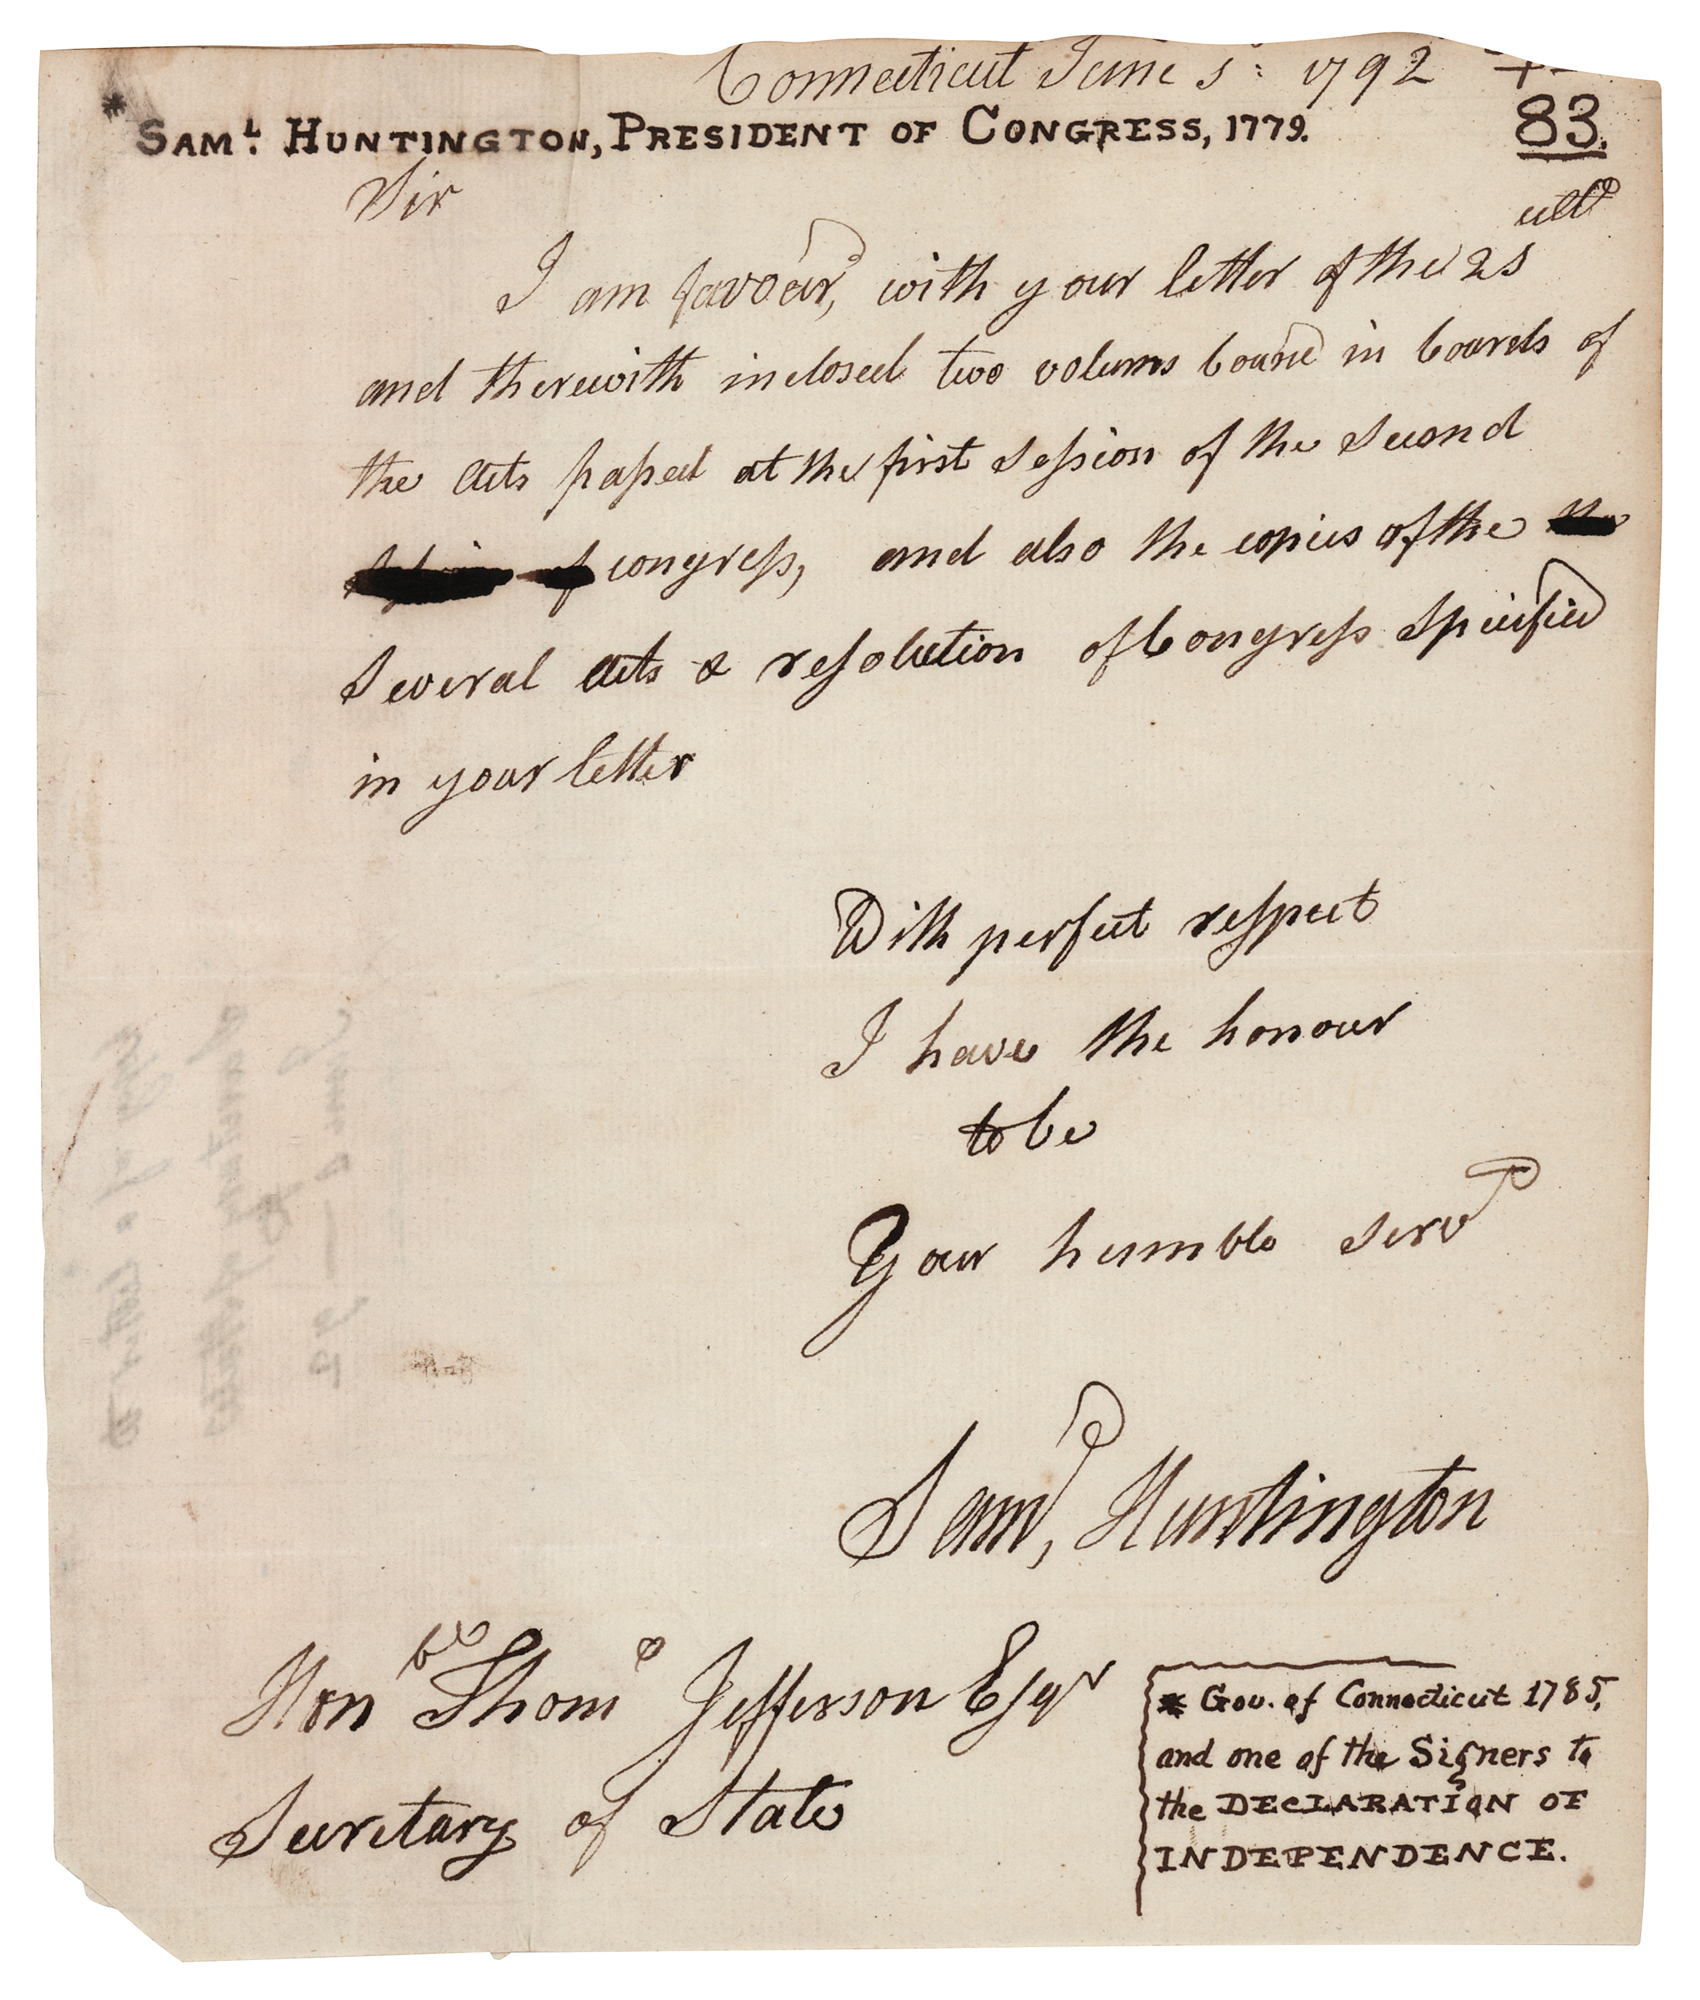 Connecticut June 5: 1792
* SAMˡ. HUNTINGTON, PRESIDENT OF CONGRESS, 1779.
83.
Sir
I am favour'd, with your letter of the 25 ultº
and therewith inclosed two volums bound in boards of
the Acts paſsed at the first Seſsion of the Second
congreſs, and also the copies of the
Several Acts & reſolution of Congreſs Specified
in your letter
With perfect reſpect
I have the honour
to be
Your humble servᵗ
Samˡ, Huntington
Honᵇˡᵉ Thomˢ Jefferson Esqʳ
Secretary of State
* Gov. of Connecticut 1785,
and one of the Signers to
the DECLARATION OF
INDEPENDENCE.